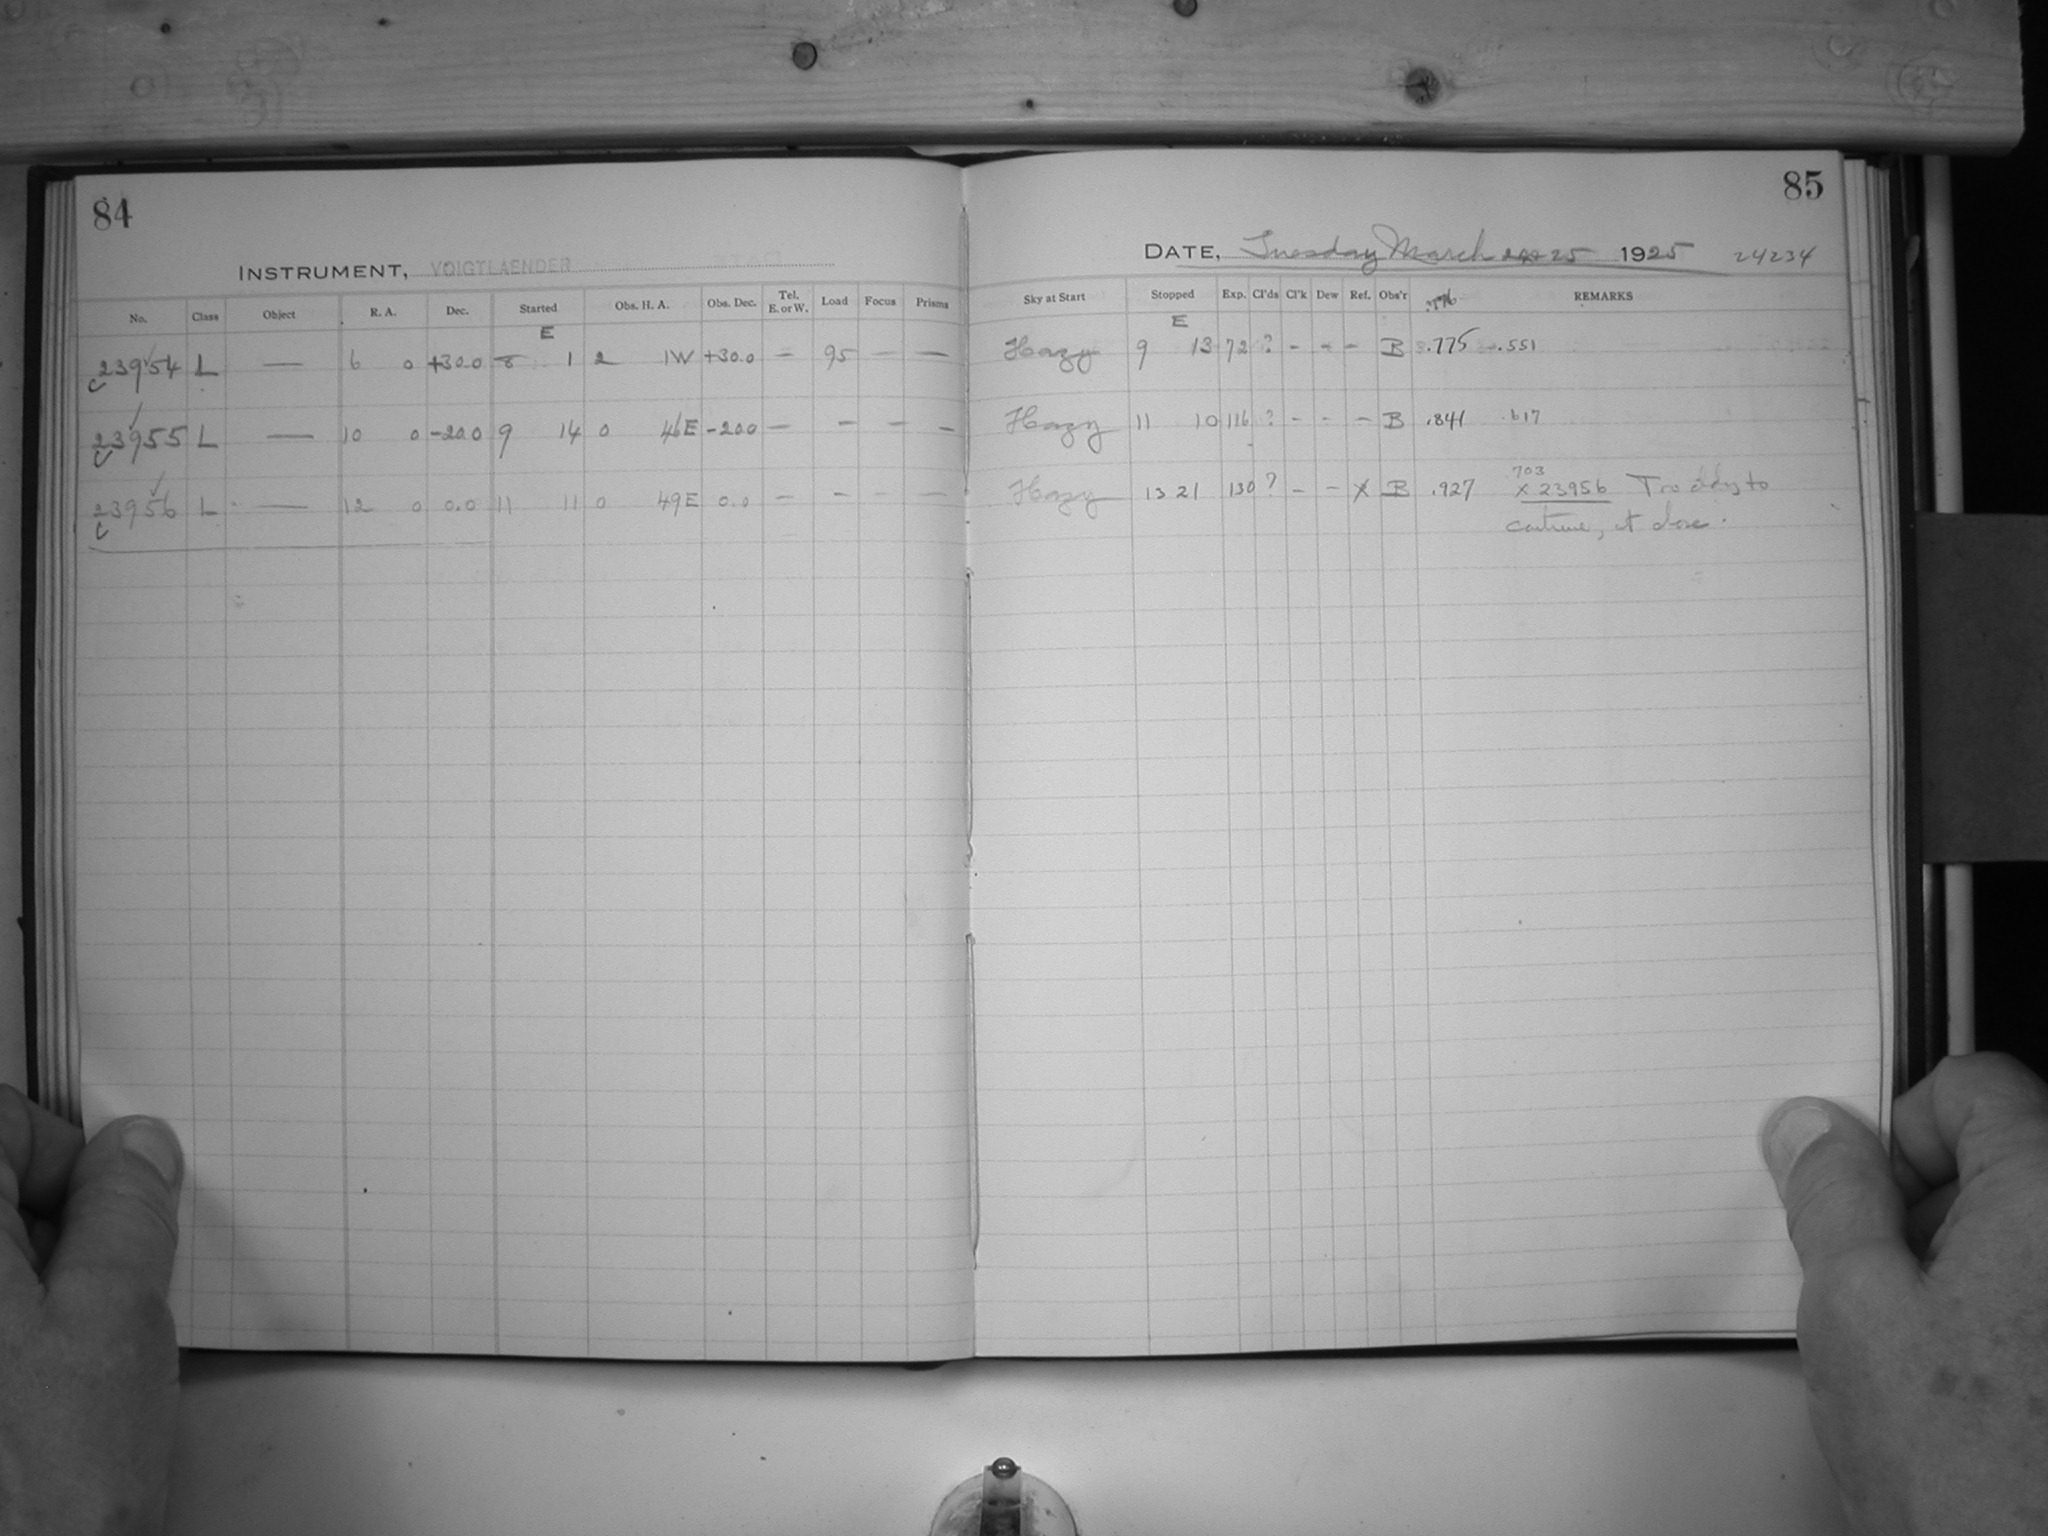 84
INSTRUMENT, VOIGTLAENDER
No. Class Object R. A. Dec. Started Obs. H. A. Obs. Dec. Tel. E. or W. Load Focus Prisms
E
23954 L — 6 0 +30.0 8 1 2 1W +30.0 — 95 — —
23955 L — 10 0 -20.0 9 14 0 46E -20.0 — — — —
23956 L — 12 0 0.0 11 11 0 49E 0.0 — — — —
85
DATE, Tuesday March 25 1925 24234
Sky at Start Stopped Exp. Cl'ds Cl'k Dew Ref. Obs'r REMARKS
E
Hazy 9 13 72 ? - - - B .775 .551
Hazy 11 10 116 ? - - - B .841 .617
703
Hazy 13 21 130 ? - - X B .927 X 23956 Too to
continue, at close.